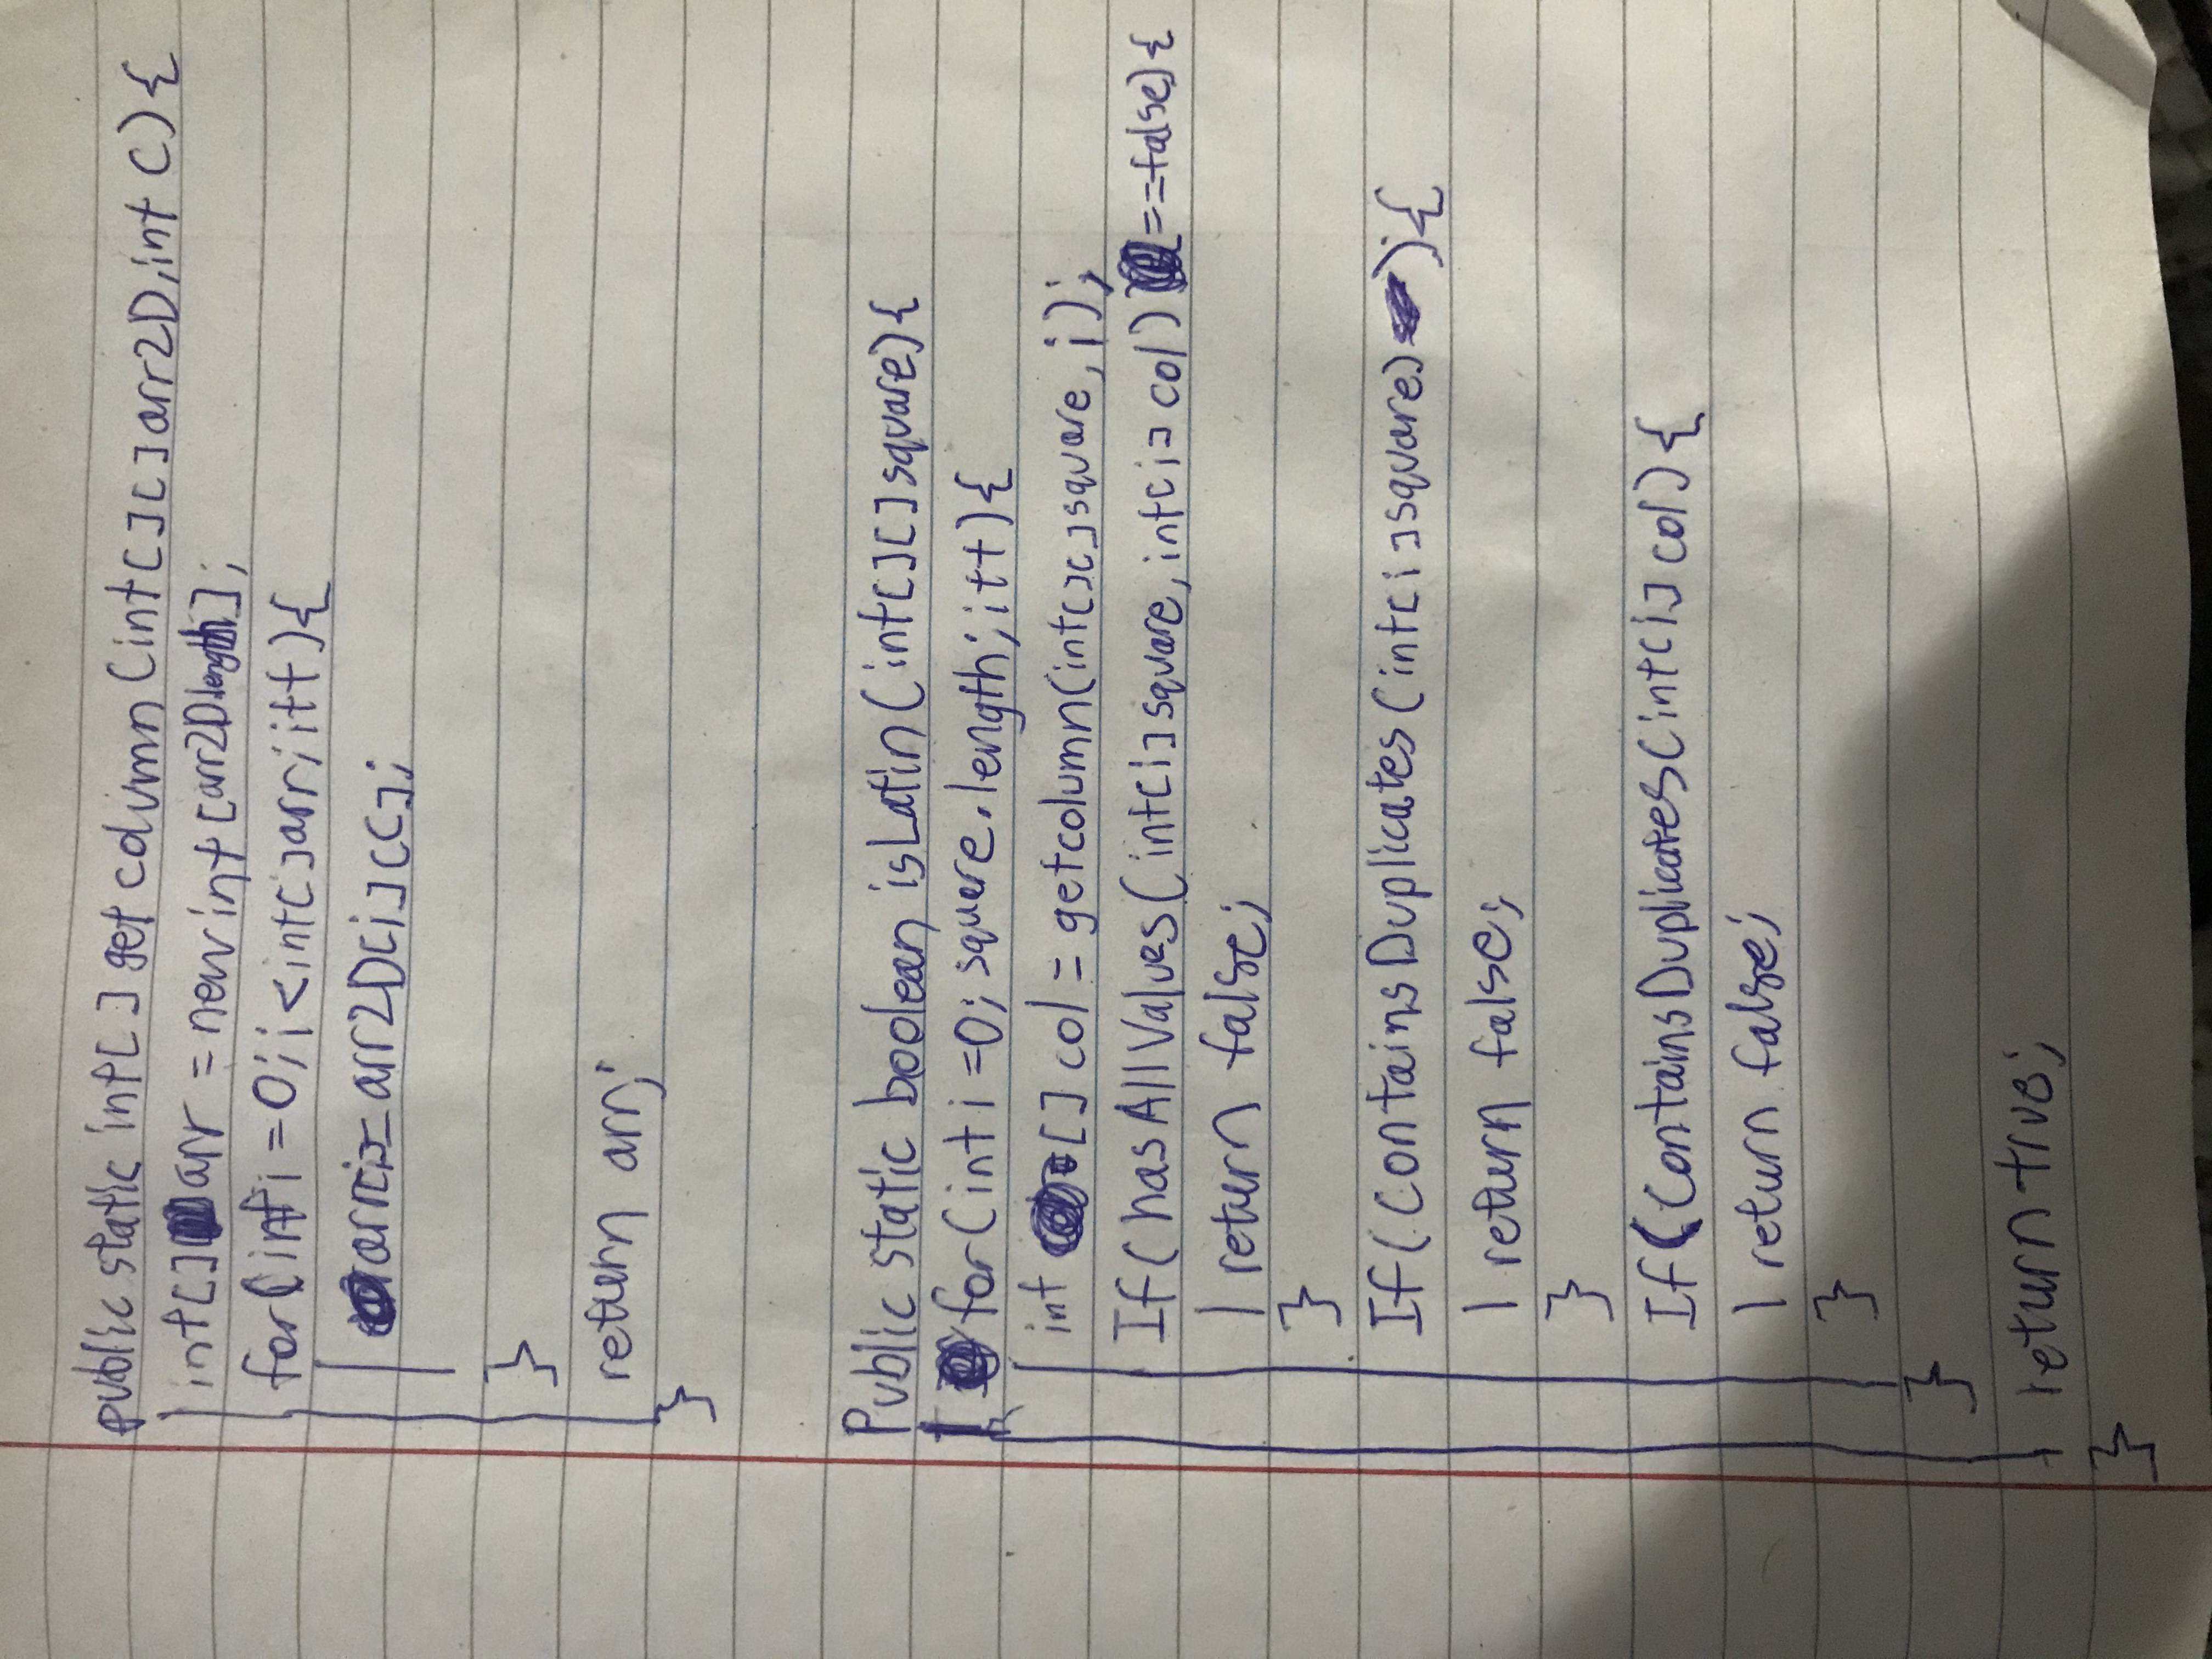 public static int[] get column (int[][] arr2D, int C) {
int[] arr = new int [arr2D.length];
for (int i = 0; i < int[] arr; i++) {
arr[i] = arr2D[i][C];
}
return arr;
}
Public static boolean isLatin (int[][] square) {
for (int i = 0; square.length; i++) {
int [] col = getcolumn(int[][] square, i);
If (hasAllValues (int[i] square, int[i] col) ) == false) {
return false;
}
If (ContainsDuplicates (int[i] square) ) {
return false;
}
If (ContainsDuplicates (int[i] col) {
return false;
}
}
return true;
}